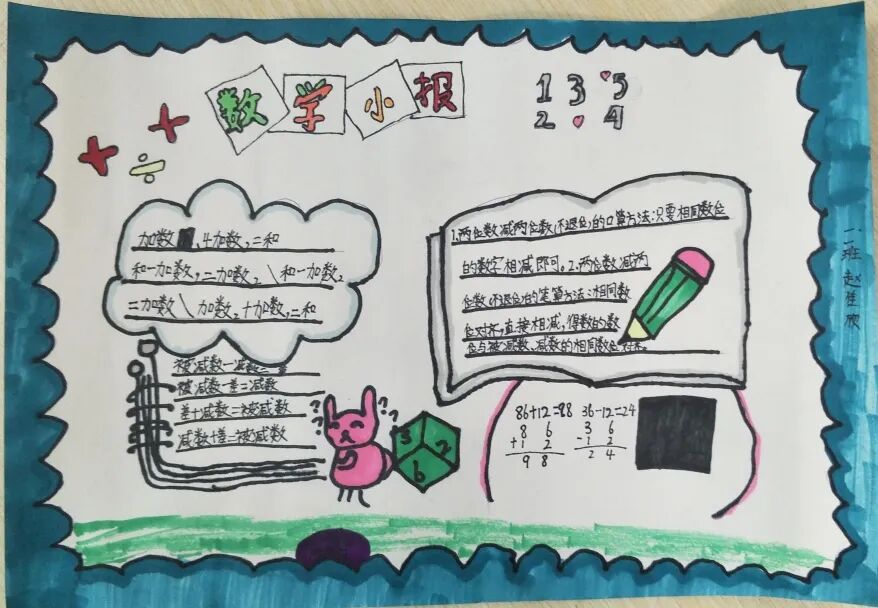 数学小报
1 3 5
2 4
加数,+加数,=和
和-加数,=加数2\和-加数2
=加数\加数2+加数,=和
被减数-减数=差
被减数-差=减数
差+减数=被减数
减数+差=被减数
1.两位数减两位数(不退位)的口算方法:只要相同数位
的数字相减即可。2.两位数减两
位数(不退位)的笔算方法:相同数
位对齐,直接相减,得数的数
位与被减数、减数的相同数位对齐。
? ? ? ?
3 2
6
86+12=98 36-12=24
8 6 3 6
+1 2 -1 2
9 8 2 4
二班 赵佳欣